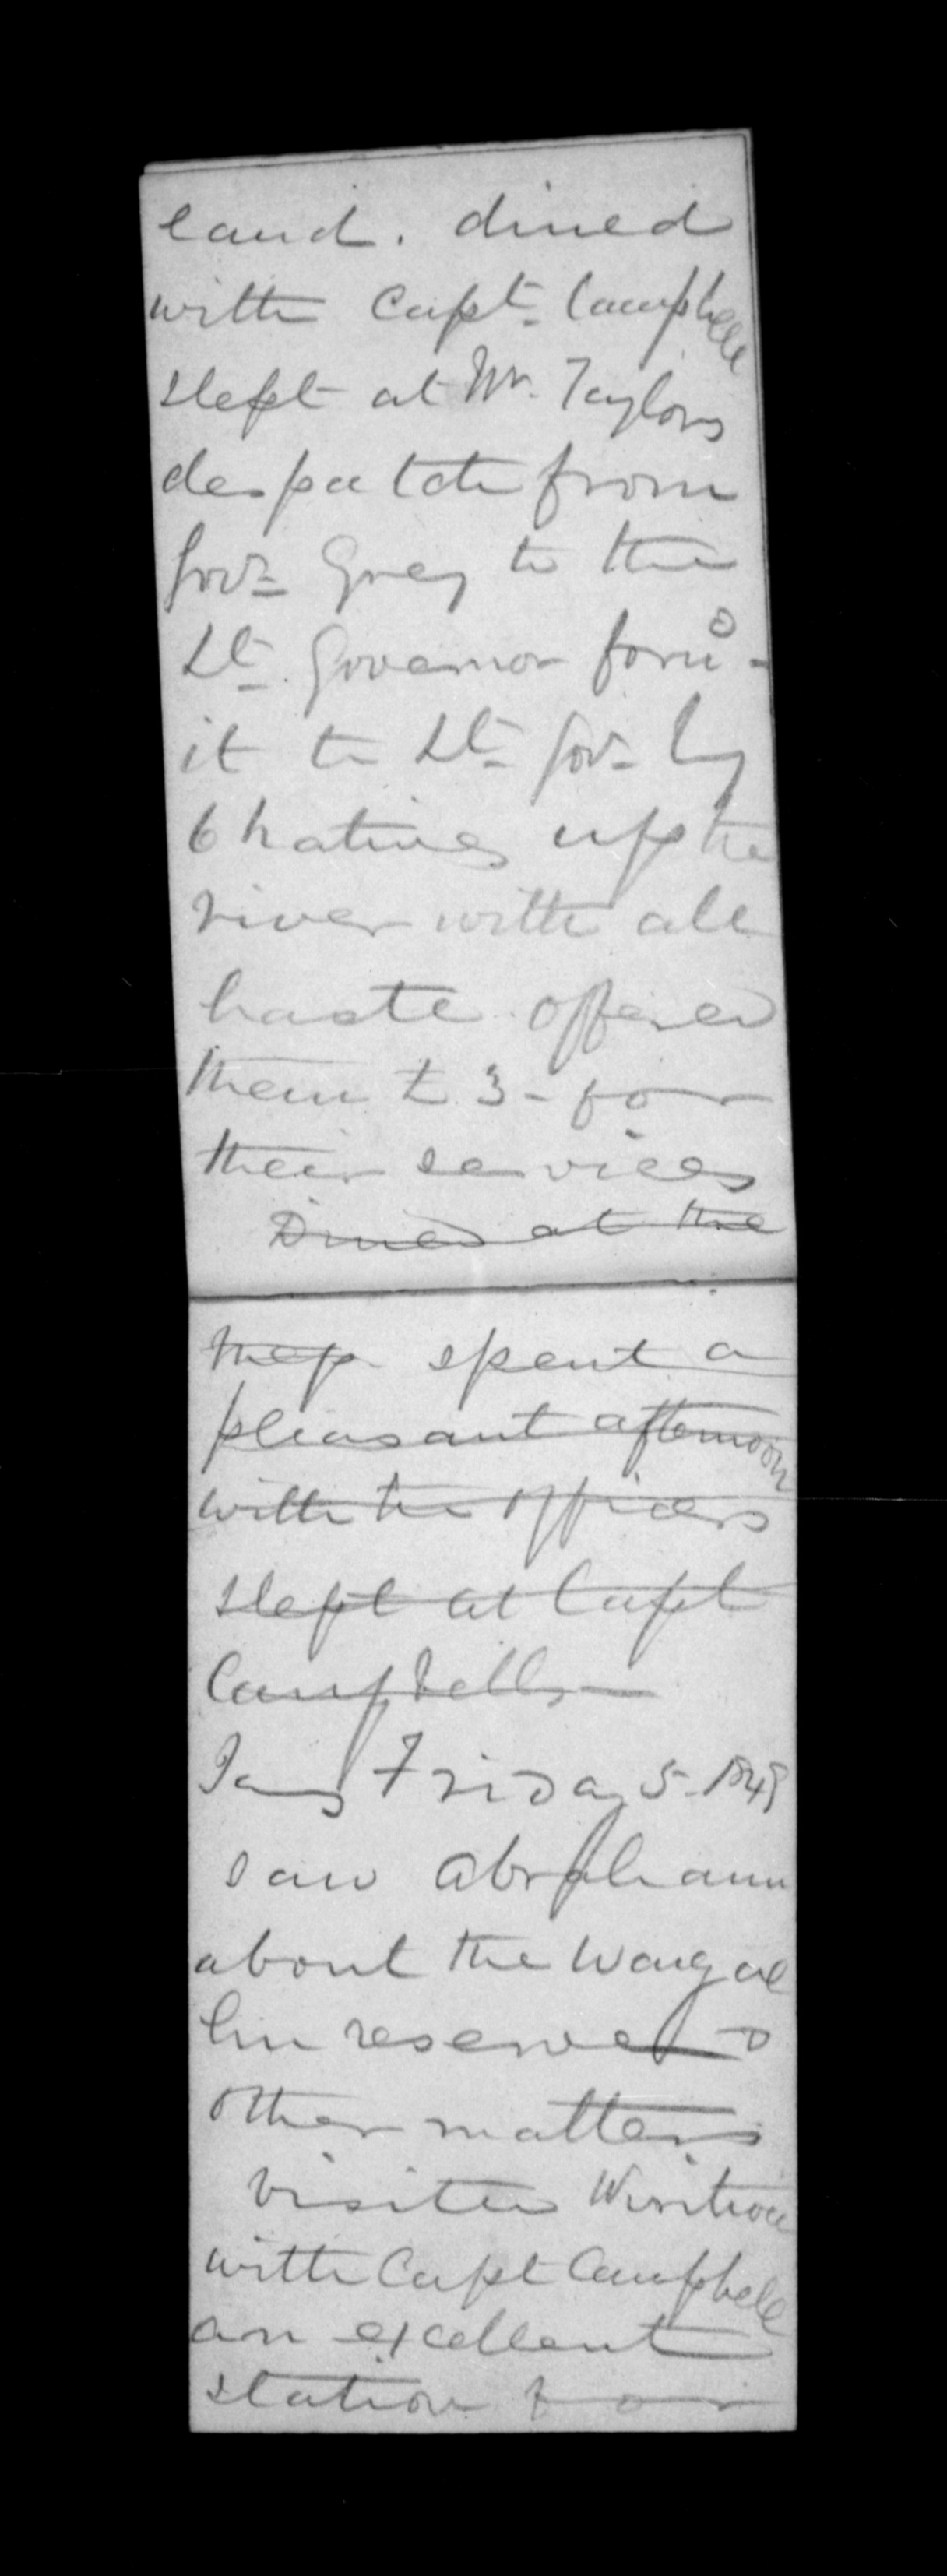 land. dined
with Capt. Campbell
slept at Mr. Taylors
despatch from
Govr. Grey to the
Lt. Governor forwd.
it to Lt. Gov. by
6 natives up the
river with all
haste offered
them £3- for
their services
Dined at the
Mess spent a
pleasant afternoon
with the officers
slept at Capt
Campbells—
Jany Friday 5. 1849
saw Abraham
about the
reserve &
other matters
visited
with Capt Campbell
an excellent
station for